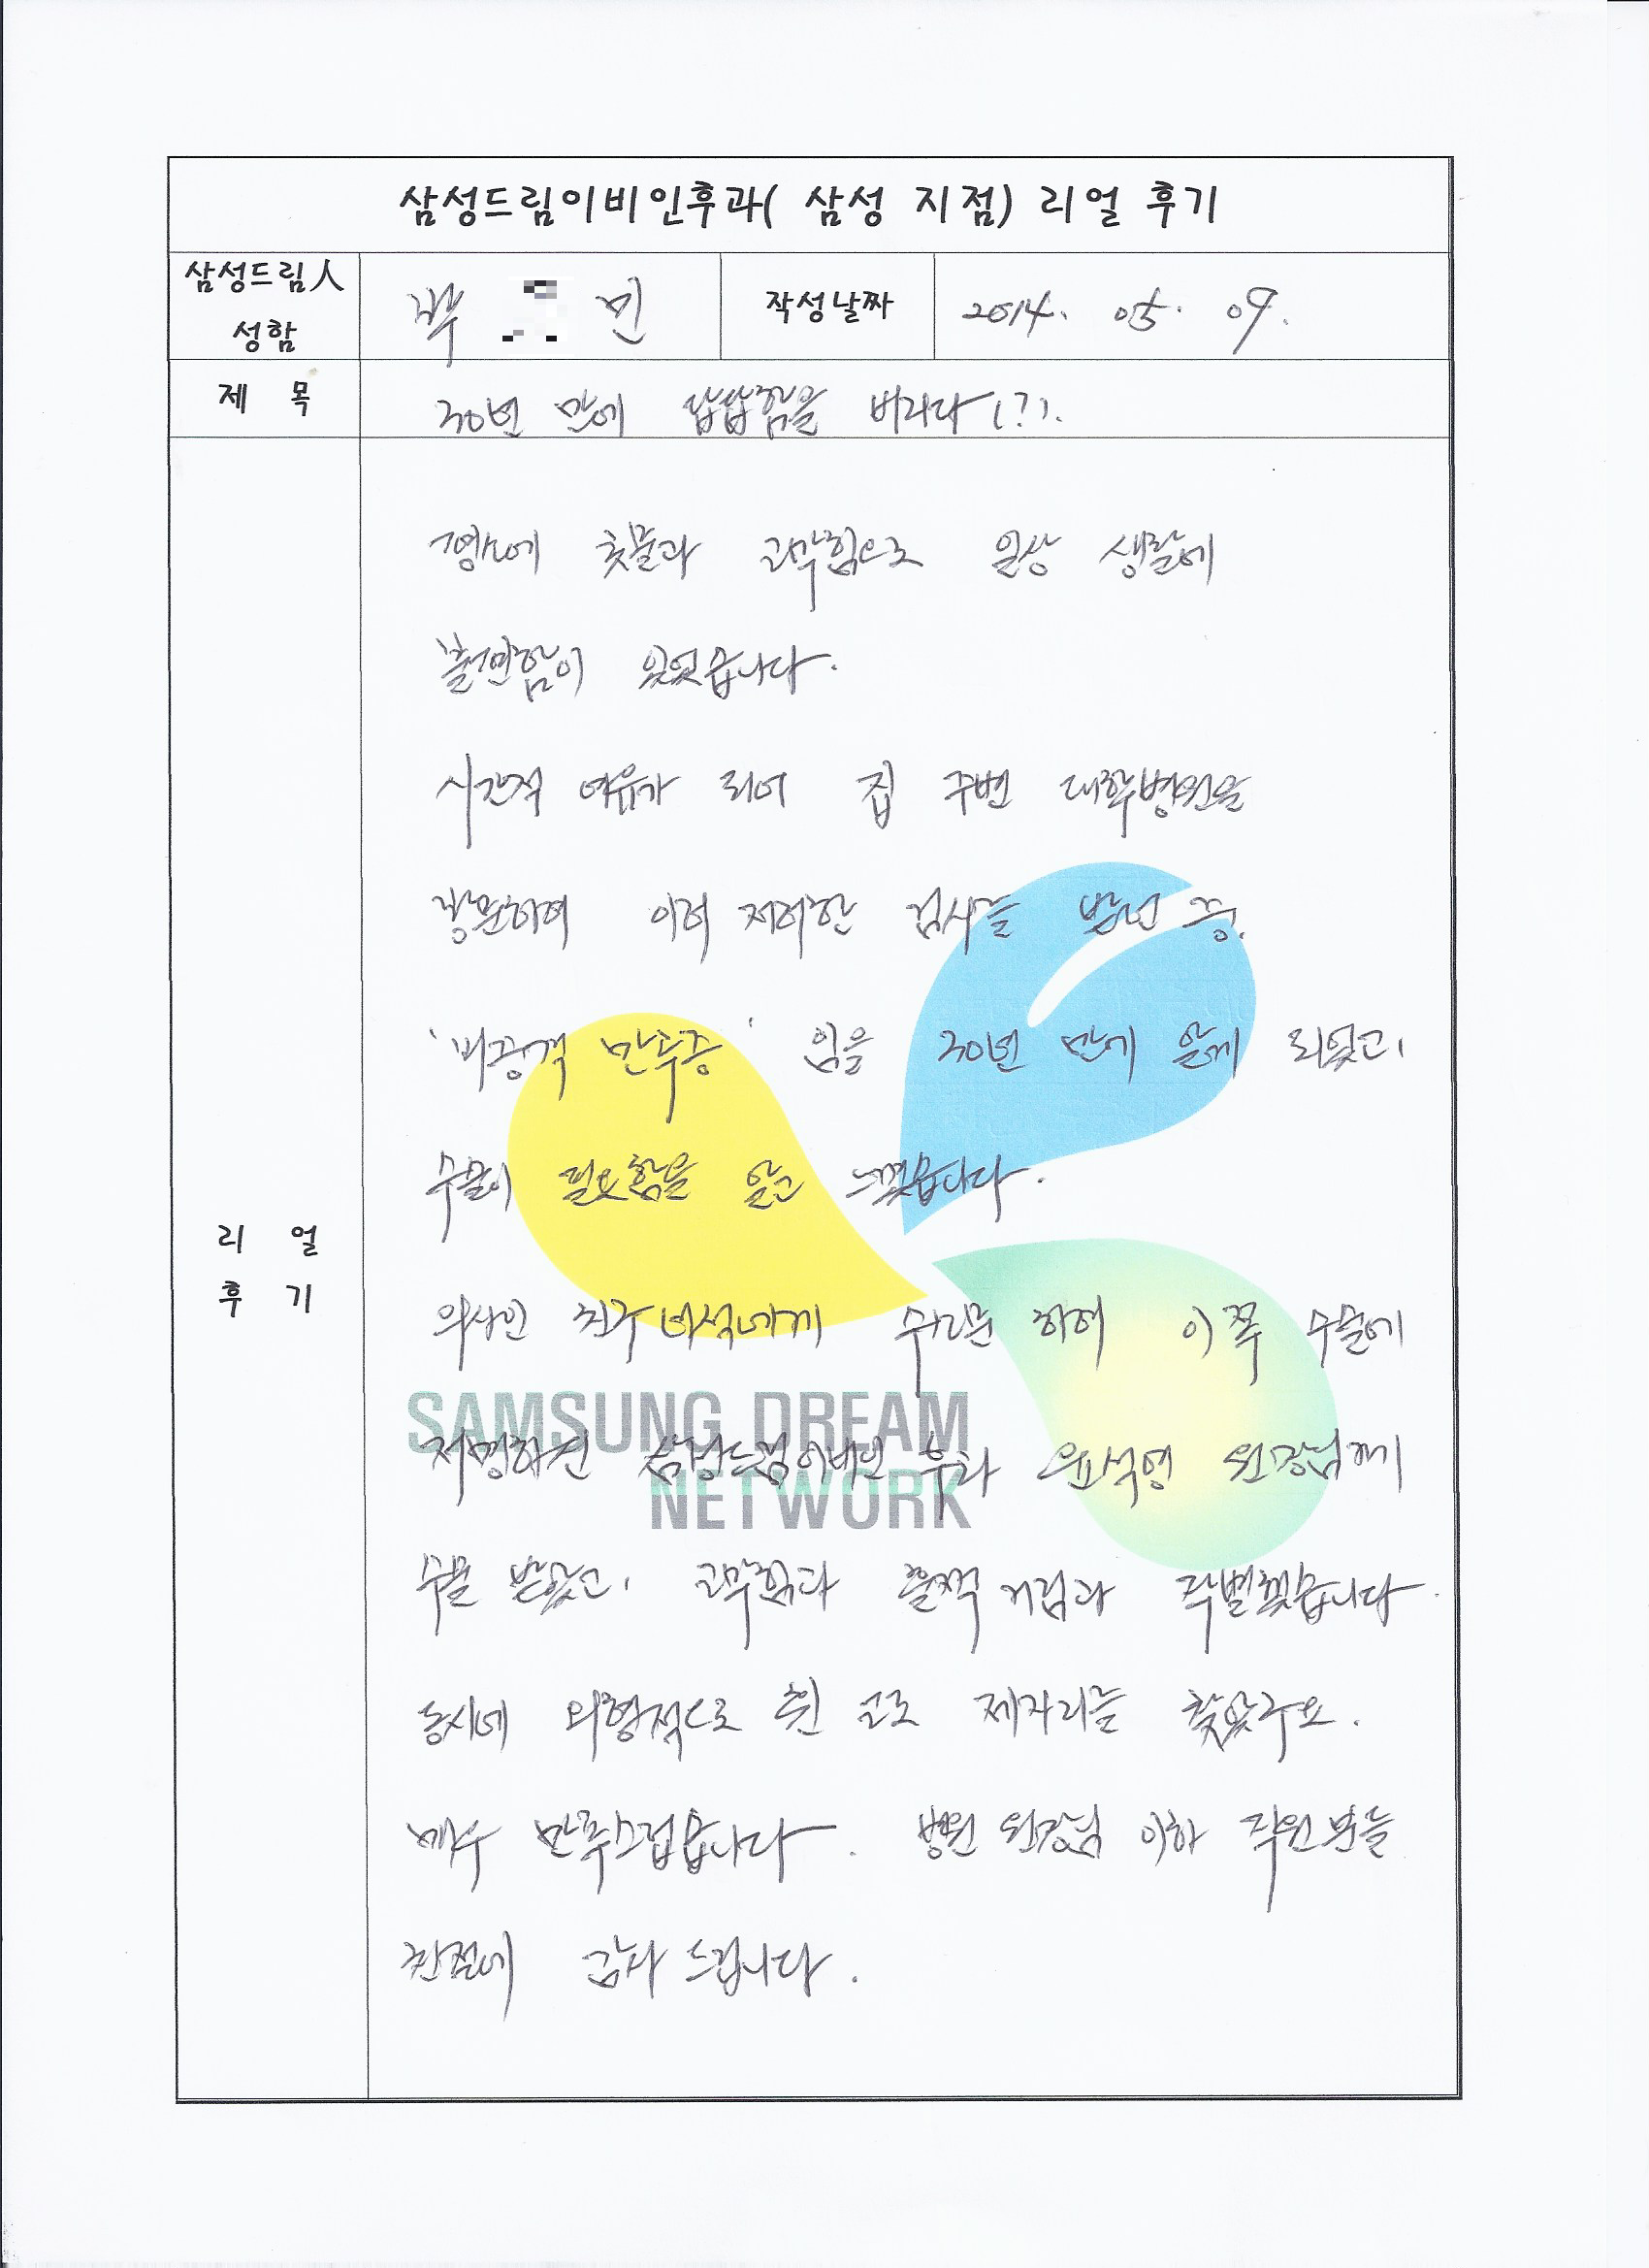 삼성드림이비인후과( 삼성 지점) 리얼 후기
삼성드림人 성함
박 민
작성날짜
2014. 05. 09.
제 목
30년 만에 답답함을 버리다(?).
리 얼 후 기
평소에 콧물과 코막힘으로 일상 생활에
불편함이 있었습니다.
시간적 여유가 되어 집 주변 대학병원을
방문하여 이러 저러한 검사를 받던 중,
'비중격 만곡증' 임을 30년 만에 알게 되었고,
수술이 필요함을 알고 느꼈습니다.
의사인 친구 녀석에게 수소문 하여 이쪽 수술에
저명하신 삼성드림이비인 후과 원장님께
SAMSUNG DREAM
NETWORK
수술 받았고, 코막힘과 훌쩍 거림과 작별했습니다.
동시에 외형적으로 휜 코로 제자리를 찾았구요.
매우 만족스럽습니다. 병원 원장님 이하 직원분들
친절에 감사 드립니다.